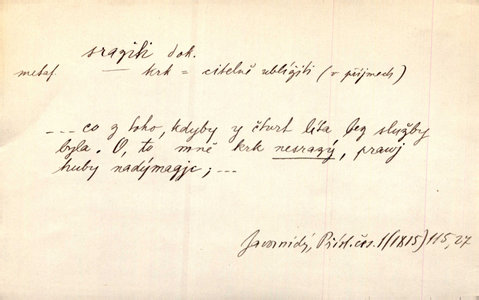 sragiti dok.
metaf. — krk = citelně ublížiti (v příjmech)
... co z toho, kdyby y čtvrt léta bez služby
byla. O, to mně krk nesragý, prawj
huby nadýmagjc; ...
Javornický, Přid. čes. 1 (1815) 115, 27